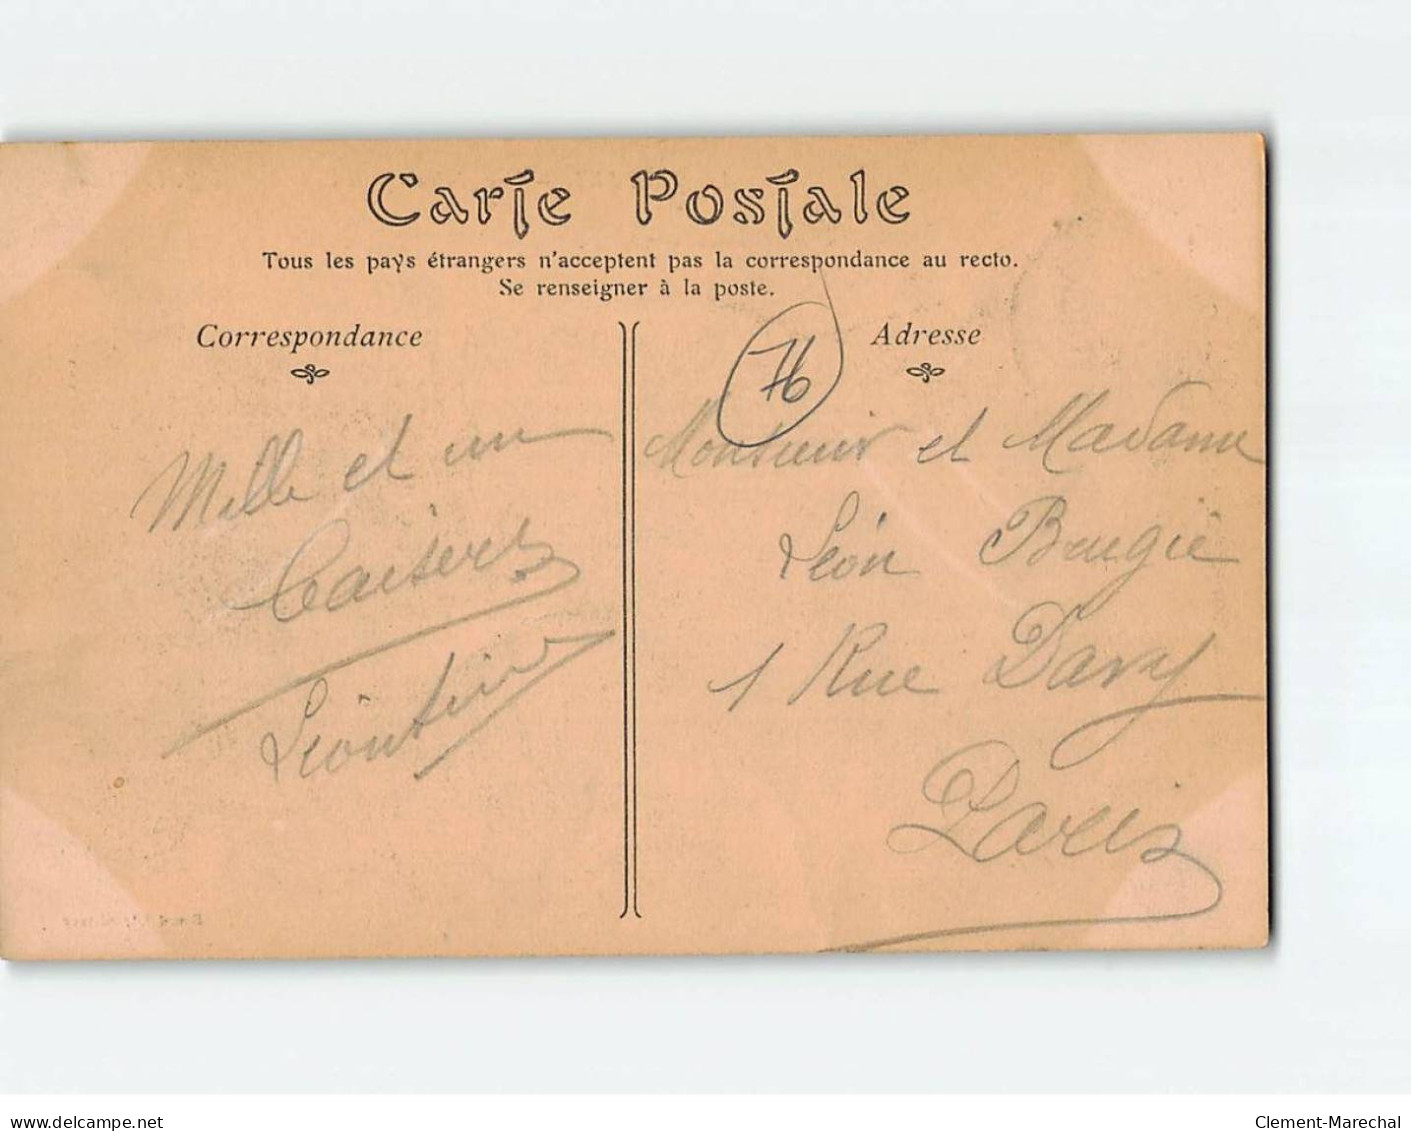 Carte Postale
Tous les pays étrangers n'acceptent pas la correspondance au recto.
Se renseigner à la poste.
Correspondance
Adresse
76
Mille et un
Baisers
Léontine
Monsieur et Madame
Léon Bougie
1 Rue Davy
Paris
www.delcampe.net
Clement-Marechal